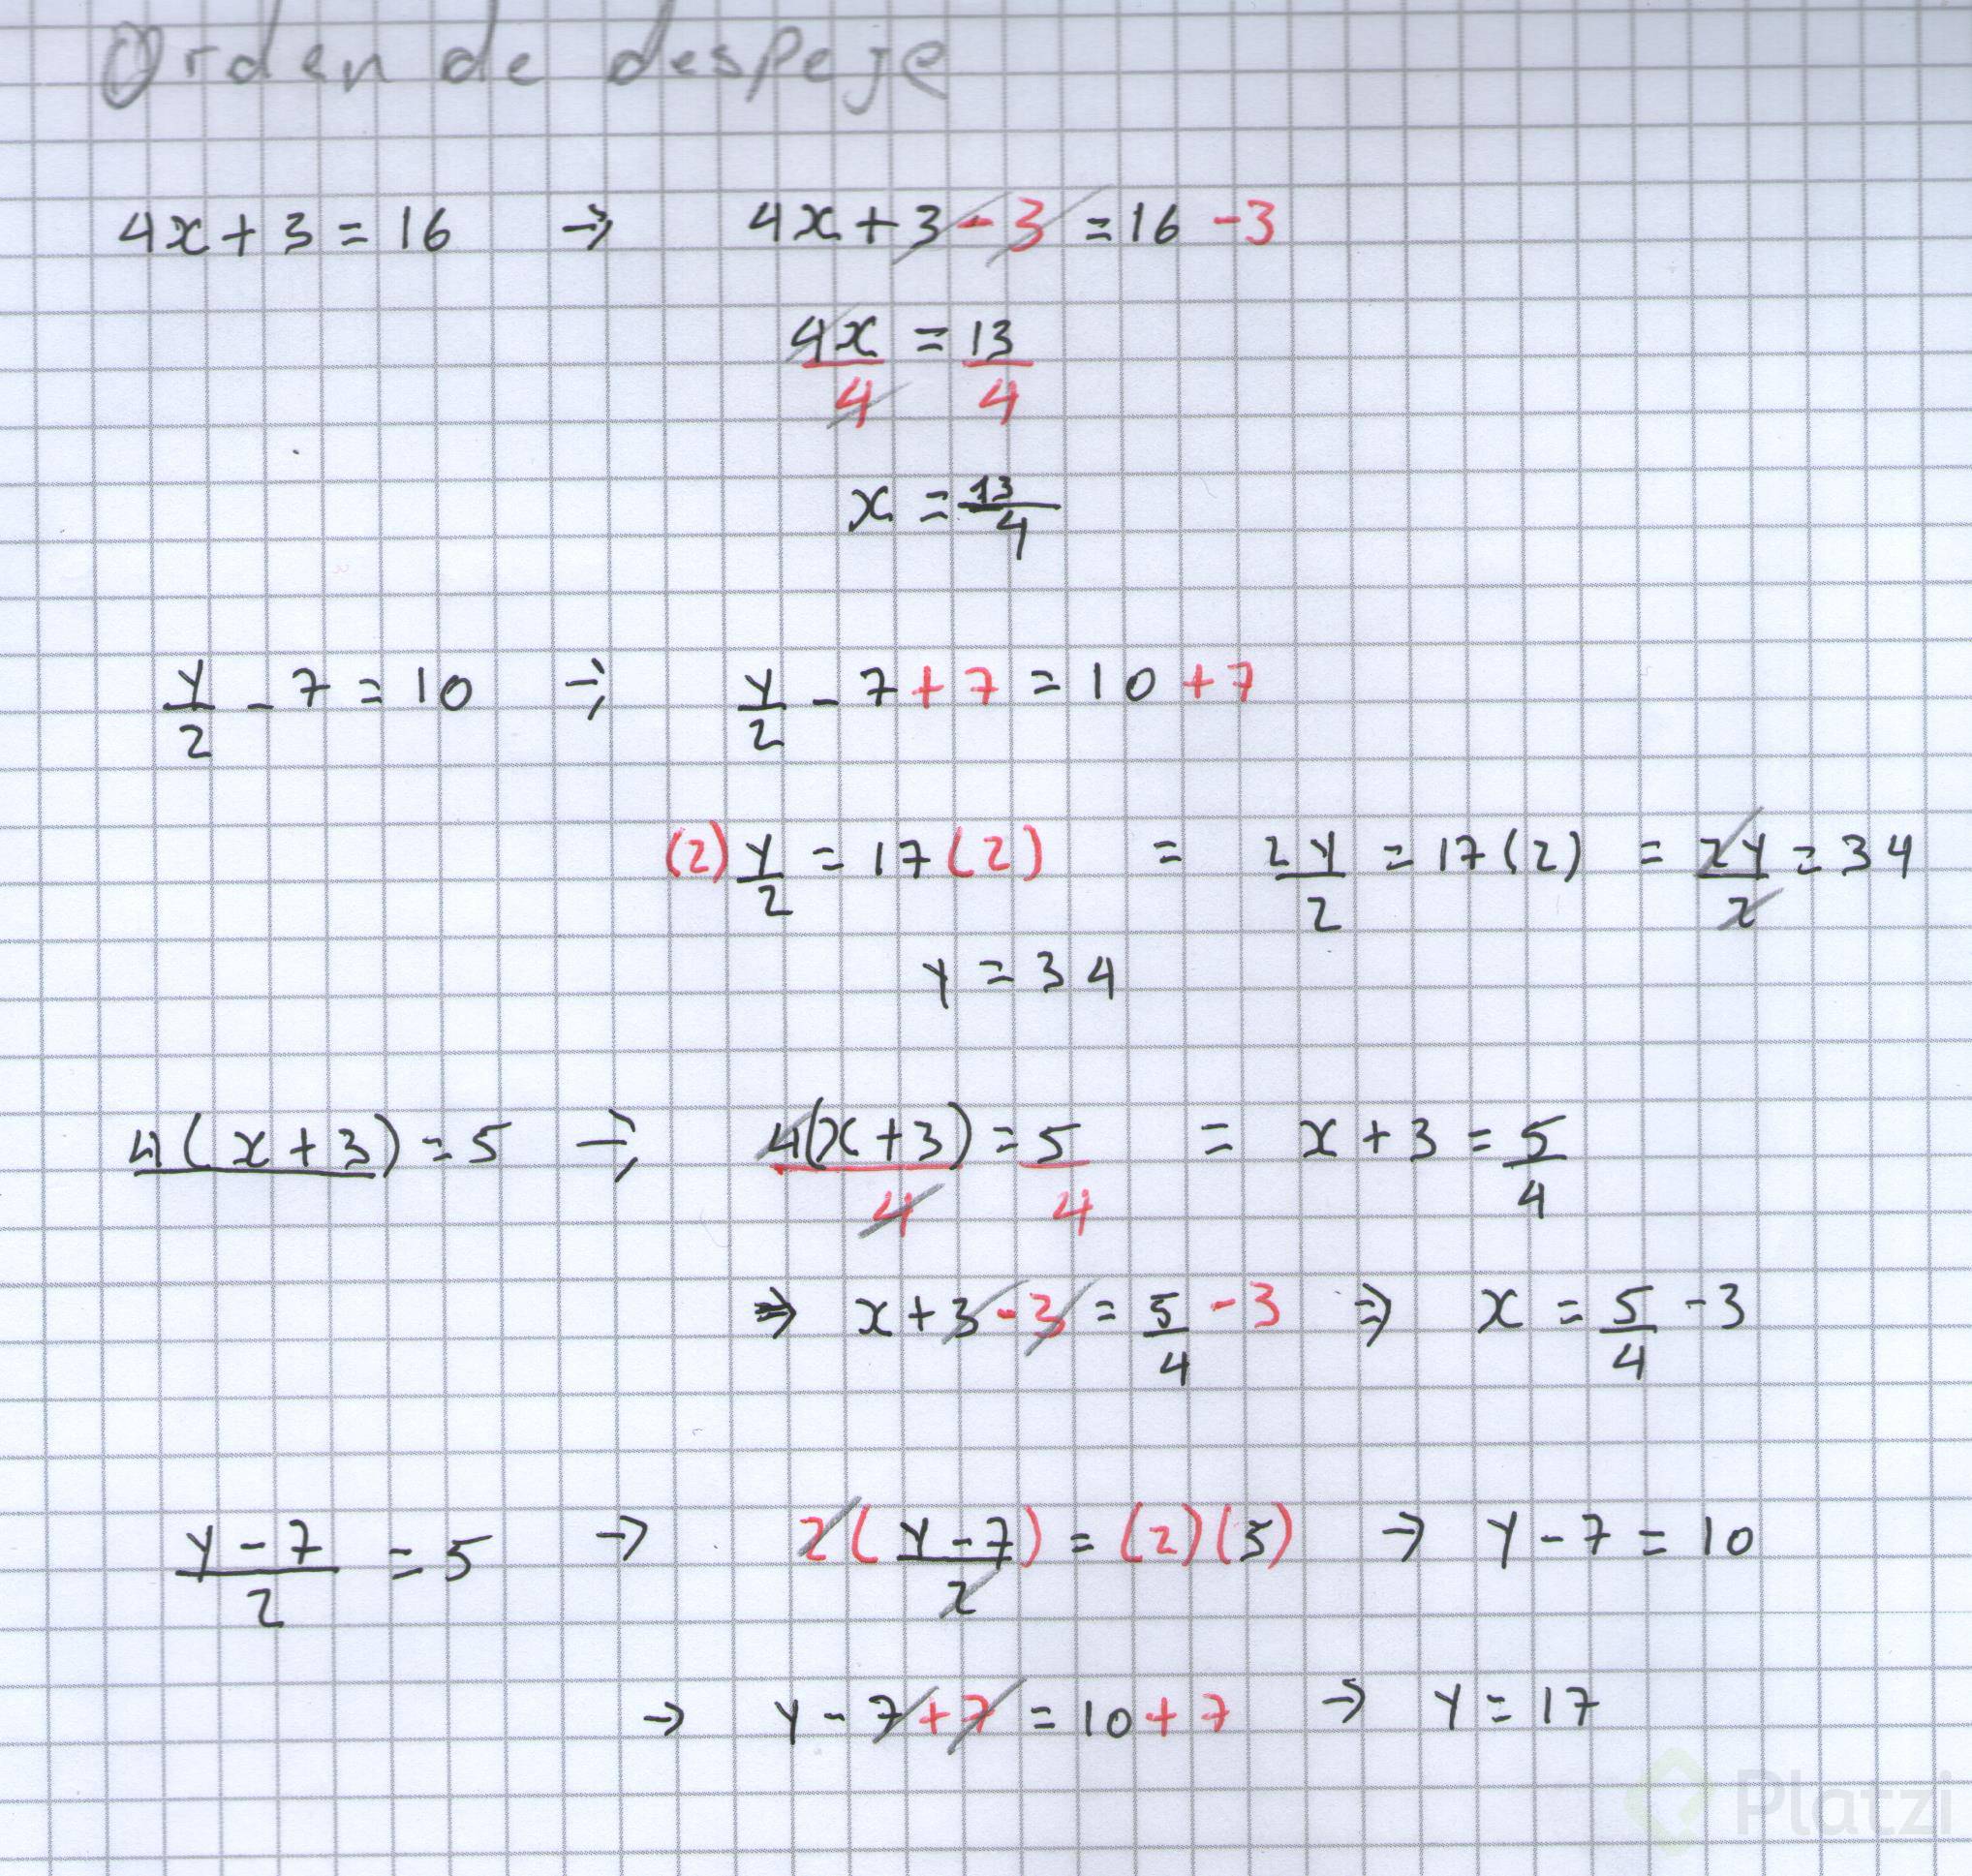 Orden de despeje
4x + 3 = 16 → 4x + 3 - 3 = 16 - 3
4x/4 = 13/4
x = 13/4
y/2 - 7 = 10 → y/2 - 7 + 7 = 10 + 7
(2) y/2 = 17 (2) = 2y/2 = 17 (2) = 2y/2 = 34
y = 34
4(x + 3) = 5 → 4(x + 3)/4 = 5/4 = x + 3 = 5/4
⇒ x + 3 - 3 = 5/4 - 3 ⇒ x = 5/4 - 3
y - 7/2 = 5 → 2(y - 7/2) = (2)(5) → y - 7 = 10
→ y - 7 + 7 = 10 + 7 → y = 17
Platzi